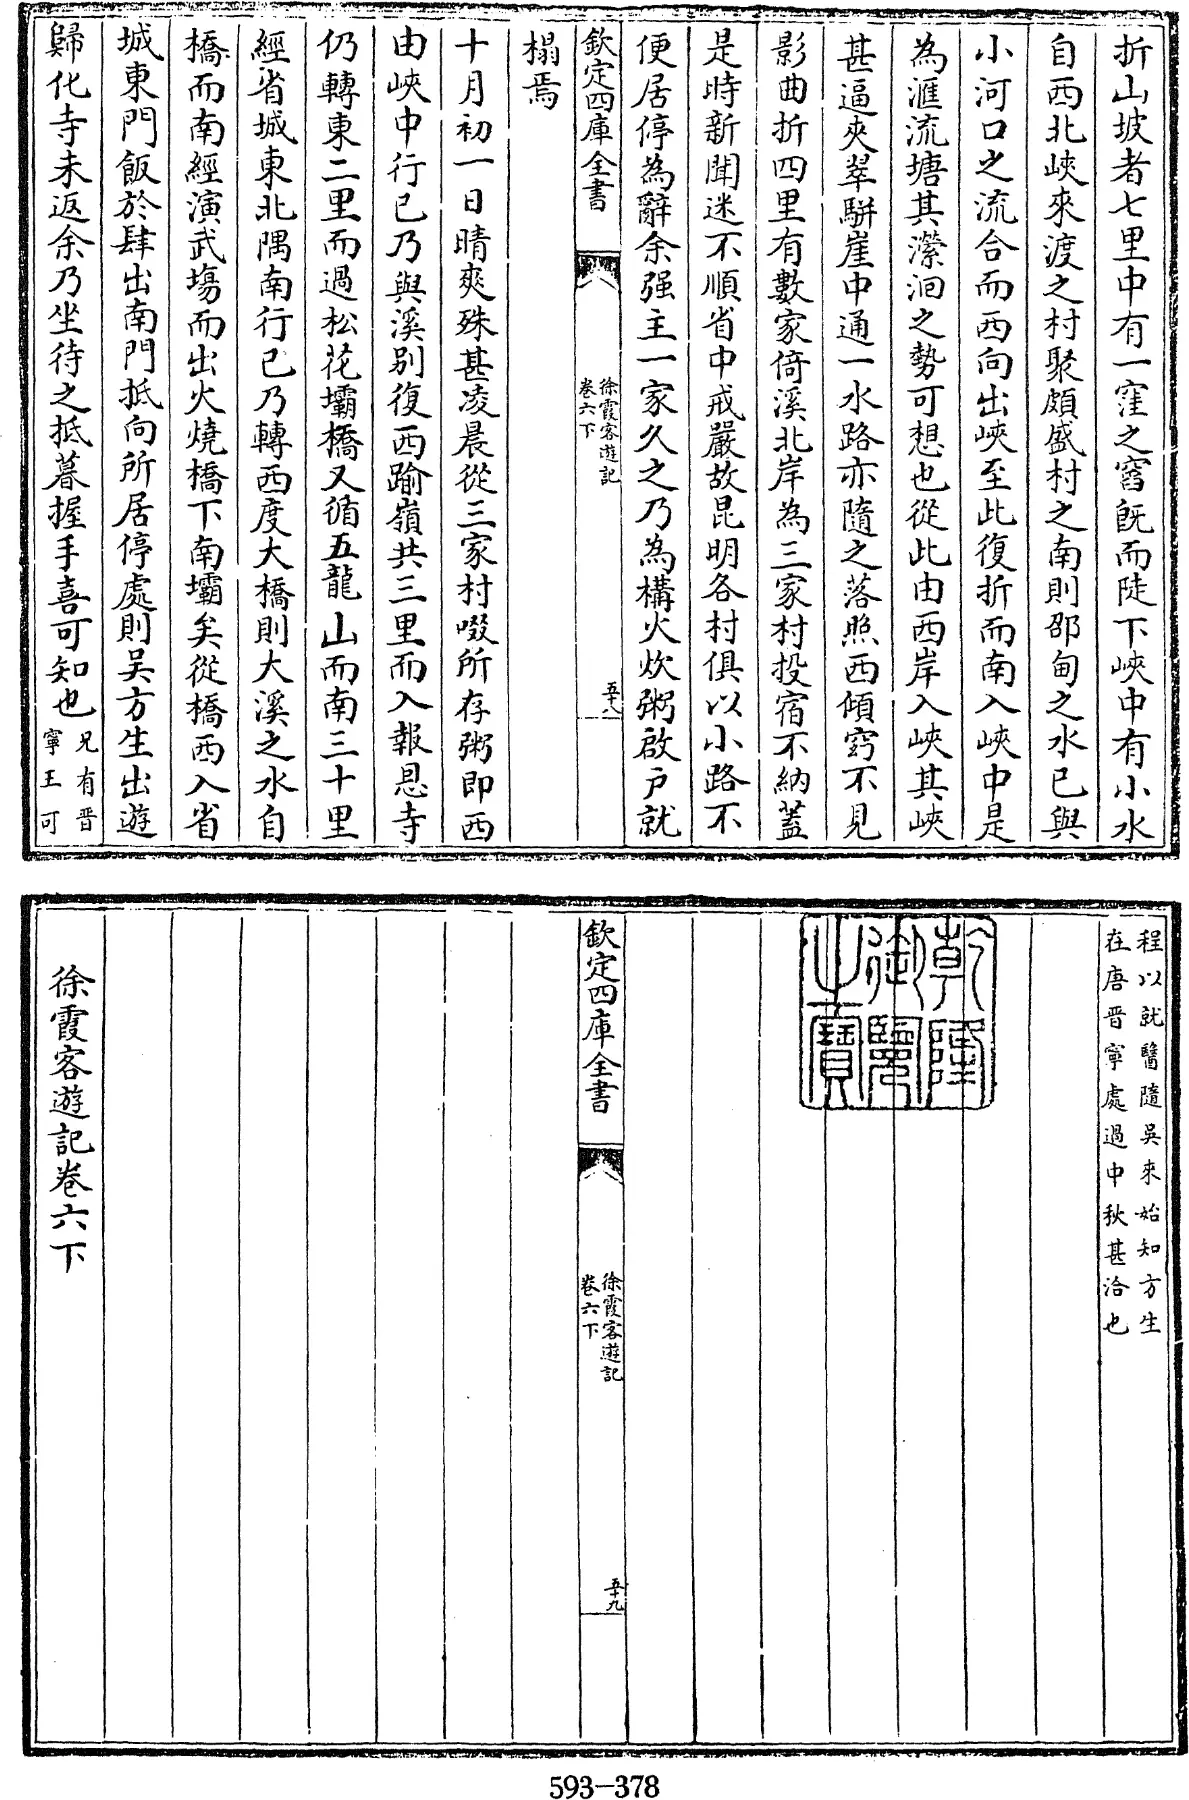 折山坡者七里中有一窪之窞旣而陡下峽中有小水
自西北峽來渡之村聚頗盛村之南則邵甸之水已與
小河口之流合而西向出峽至此復折而南入峽中是
為滙流塘其瀠洄之勢可想也從此由西岸入峽其峽
甚逼夾翠駢崖中通一水路亦隨之落照西傾窈不見
影曲折四里有數家倚溪北岸為三家村投宿不納蓋
是時新聞迷不順省中戒嚴故昆明各村俱以小路不
便居停為辭余强主一家久之乃為構火炊粥啟户就
欽定四庫全書
徐霞客遊記
卷六下
五十八
榻焉
十月初一日晴爽殊甚凌晨從三家村啜所存粥即西
由峽中行已乃與溪别復西踰嶺共三里而入報恩寺
仍轉東二里而過松花壩橋又循五龍山而南三十里
經省城東北隅南行已乃轉西度大橋則大溪之水自
橋而南經演武塲而出火燒橋下南壩矣從橋西入省
城東門飯於肆出南門抵向所居停處則吴方生出遊
歸化寺未返余乃坐待之抵暮握手喜可知也
兄有晋
寧王可
程以就醫隨吴來始知方生
在唐晋寧處過中秋甚洽也
乾隆
御覽
之寶
欽定四庫全書
徐霞客遊記
卷六下
五十九
徐霞客遊記卷六下
593-378